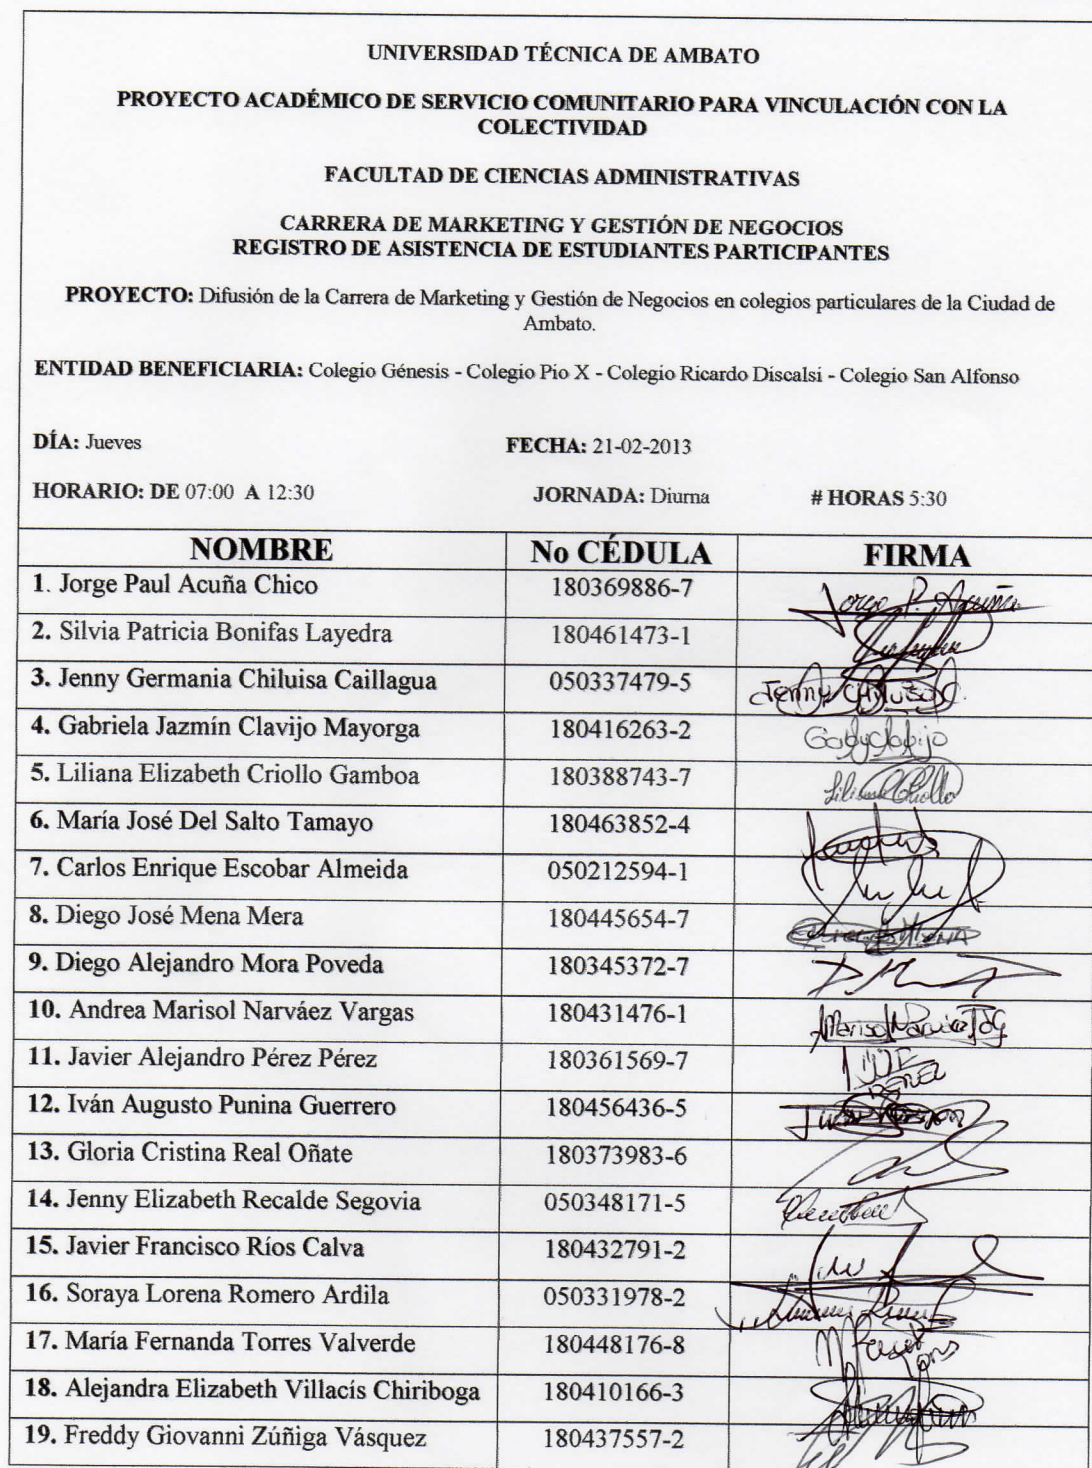 UNIVERSIDAD TÉCNICA DE AMBATO
PROYECTO ACADÉMICO DE SERVICIO COMUNITARIO PARA VINCULACIÓN CON LA
COLECTIVIDAD
FACULTAD DE CIENCIAS ADMINISTRATIVAS
CARRERA DE MARKETING Y GESTIÓN DE NEGOCIOS
REGISTRO DE ASISTENCIA DE ESTUDIANTES PARTICIPANTES
PROYECTO: Difusión de la Carrera de Marketing y Gestión de Negocios en colegios particulares de la Ciudad de
Ambato.
ENTIDAD BENEFICIARIA: Colegio Génesis - Colegio Pio X - Colegio Ricardo Discalsi - Colegio San Alfonso
DÍA: Jueves FECHA: 21-02-2013
HORARIO: DE 07:00 A 12:30 JORNADA: Diurna # HORAS 5:30
NOMBRE No CÉDULA FIRMA
1. Jorge Paul Acuña Chico 180369886-7 Jorge P. Acuña
2. Silvia Patricia Bonifas Layedra 180461473-1
3. Jenny Germania Chiluisa Caillagua 050337479-5 Jenny Chiluisa C.
4. Gabriela Jazmín Clavijo Mayorga 180416263-2 Gabyclavijo
5. Liliana Elizabeth Criollo Gamboa 180388743-7 Liliana Criollo
6. María José Del Salto Tamayo 180463852-4
7. Carlos Enrique Escobar Almeida 050212594-1
8. Diego José Mena Mera 180445654-7
9. Diego Alejandro Mora Poveda 180345372-7
10. Andrea Marisol Narváez Vargas 180431476-1 Marisol Narváez
11. Javier Alejandro Pérez Pérez 180361569-7 PEREZ
12. Iván Augusto Punina Guerrero 180456436-5
13. Gloria Cristina Real Oñate 180373983-6
14. Jenny Elizabeth Recalde Segovia 050348171-5
15. Javier Francisco Ríos Calva 180432791-2
16. Soraya Lorena Romero Ardila 050331978-2
17. María Fernanda Torres Valverde 180448176-8
18. Alejandra Elizabeth Villacís Chiriboga 180410166-3
19. Freddy Giovanni Zúñiga Vásquez 180437557-2